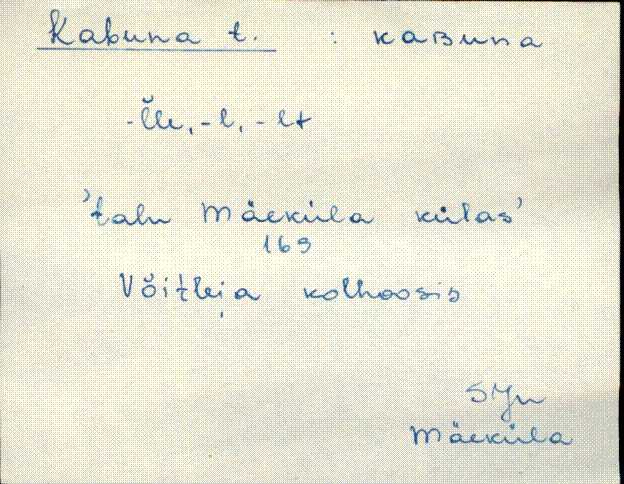 Kabuna t. : kaBuna
-l̆le, -l, -lt
'talu Mäeküla külas'
169
Võitleja kolhoosis
SJn
Mäeküla